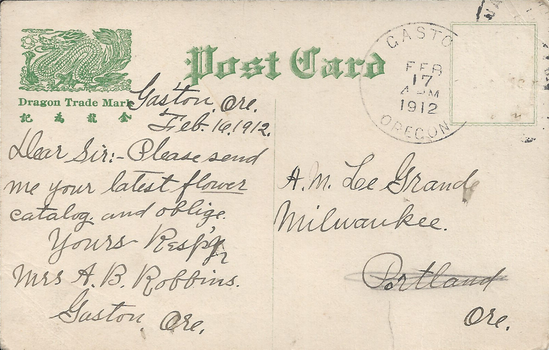 Post Card
Dragon Trade Mark
記為龍金
Gaston, Ore.
Feb. 16, 1912.
Dear Sir:- Please send
me your latest flower
catalog and oblige.
Yours Resp'y
Mrs A. B. Robbins.
Gaston, Ore.
GASTO
FEB
17
4 PM
1912
OREGON
A. M. Le Grand
Milwaukee.
Portland
Ore.